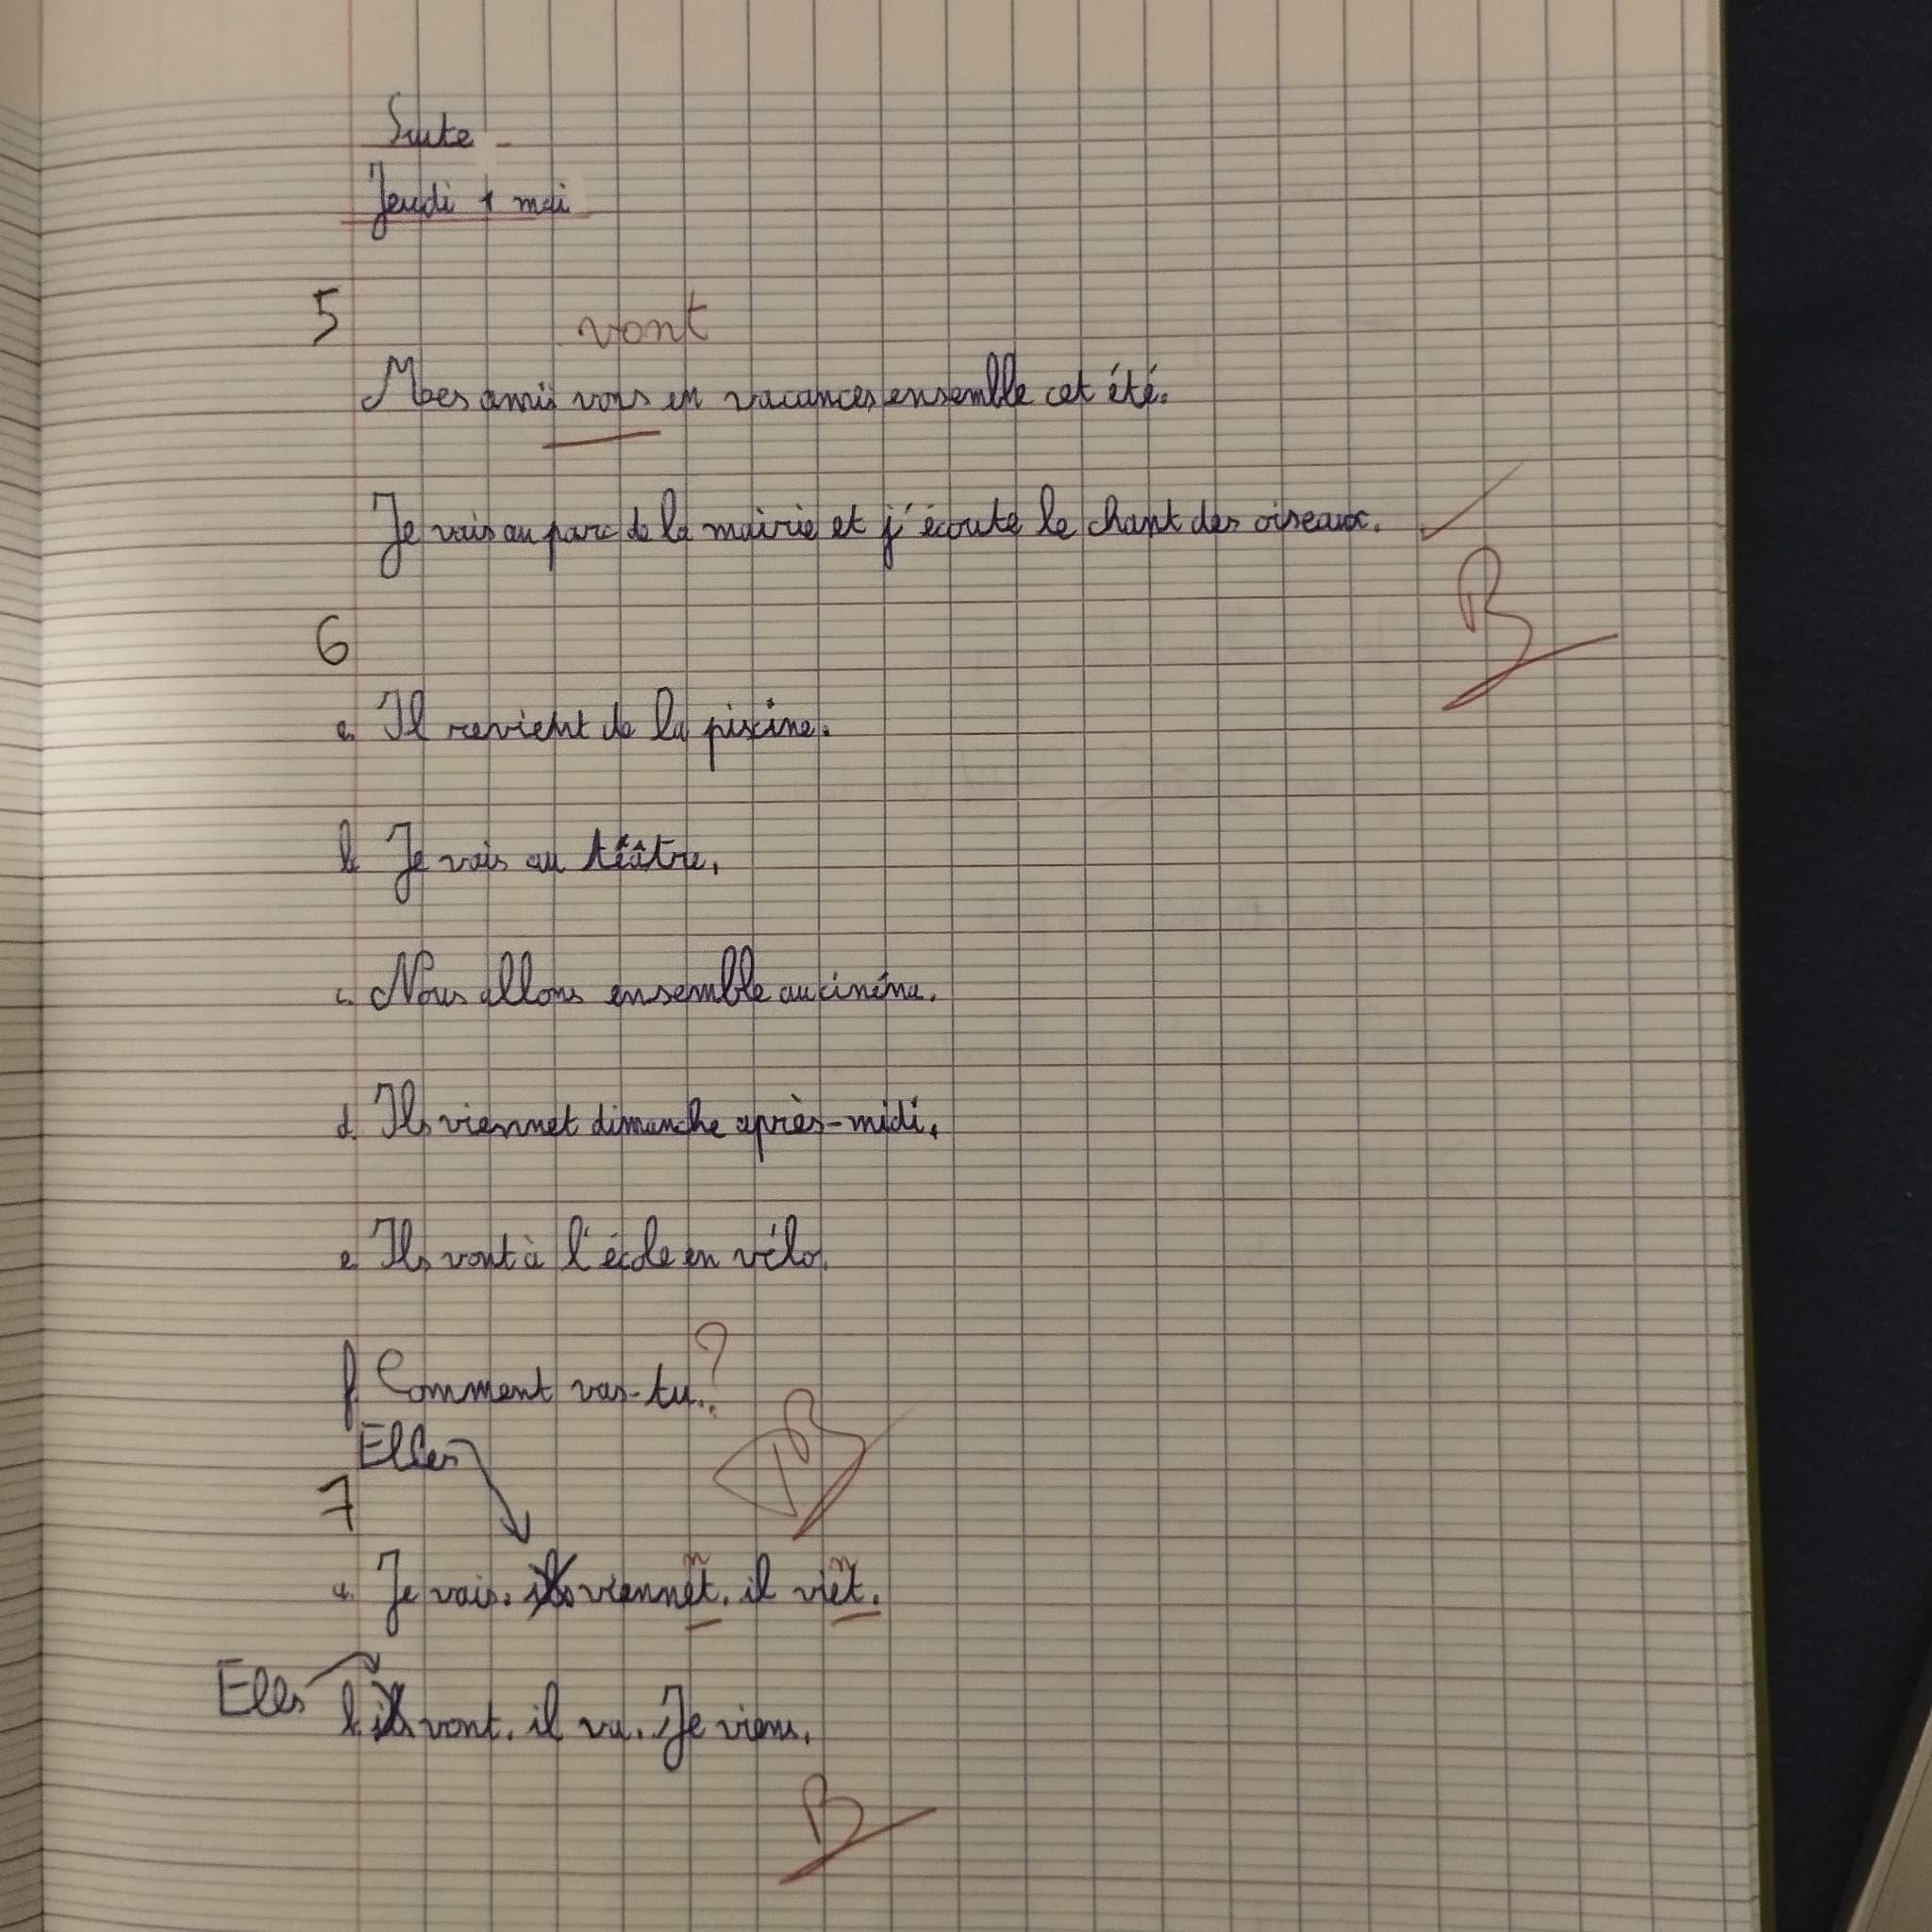 Suite
Jeudi 1 mai
5
vont
Mes amis vons en vacances ensemble cet été.
Je vais au parc de la mairie et j'écoute le chant des oiseaux.
B
6
a. Il revient de la piscine.
b. Je vais au téâtre.
c. Nous allons ensemble au cinéma.
d. Ils viennet dimanche après-midi.
e. Ils vont à l'école en vélo.
f. Comment vas-tu..?
Elles
TB
7
n n
a. Je vais. ils viennet. il viet.
Elles
b. ils vont. il va. Je viens.
B